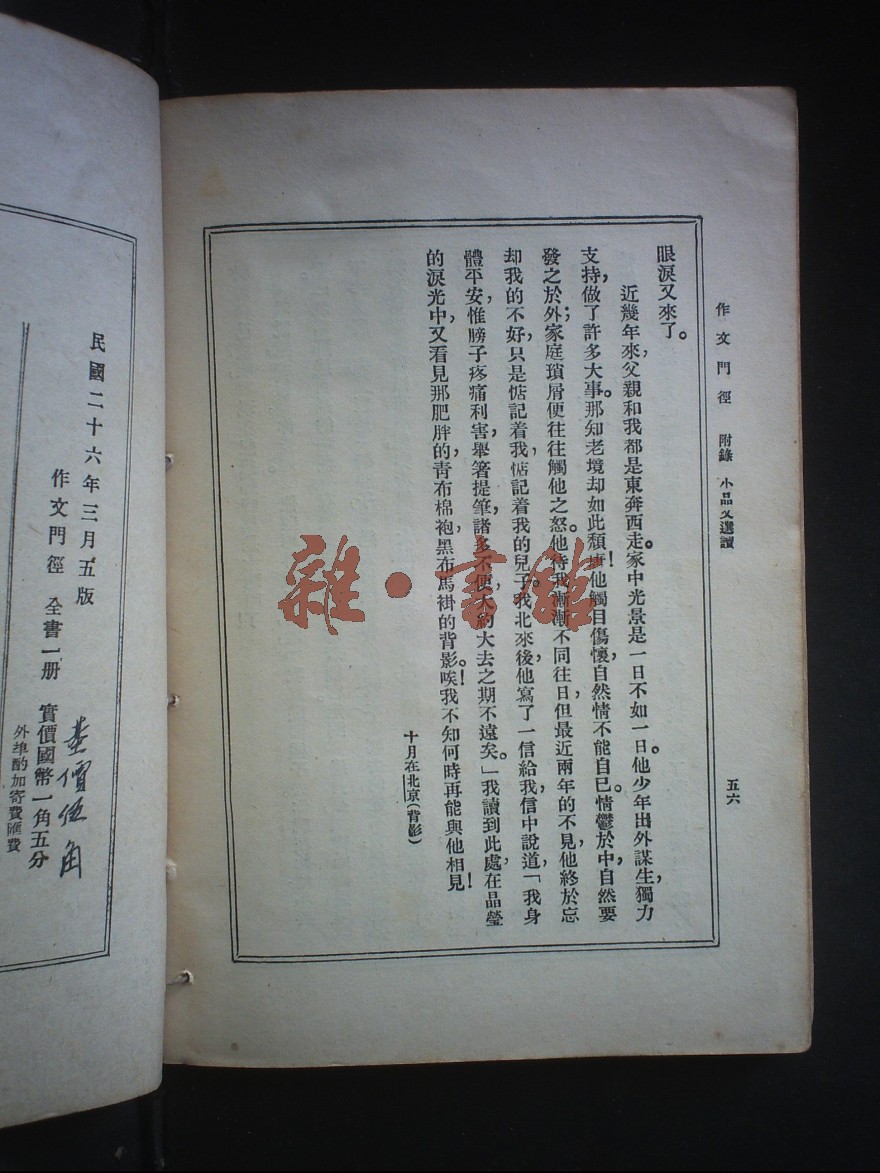 作文門徑 附錄 小品文選讀
五六
眼淚又來了。
近幾年來，父親和我都是東奔西走。家中光景是一日不如一日。他少年出外謀生，獨力
支持，做了許多大事。那知老境却如此頹唐！他觸目傷懷，自然情不能自已。情鬱於中，自然要
發之於外；家庭瑣屑便往往觸他之怒。他待我漸漸不同往日。但最近兩年的不見，他終於忘
却我的不好，只是惦記着我，惦記着我的兒子。我北來後，他寫了一信給我，信中說道「我身
體平安，惟膀子疼痛利害，舉箸提筆，諸多不便，大約大去之期不遠矣。」我讀到此處，在晶瑩
的淚光中，又看見那肥胖的，青布棉袍，黑布馬褂的背影。唉！我不知何時再能與他相見！
十月在北京（背影）
民國二十六年三月五版
作文門徑 全書一册
實價國幣一角五分
外埠酌加寄費匯費
價伍角
雜·書館